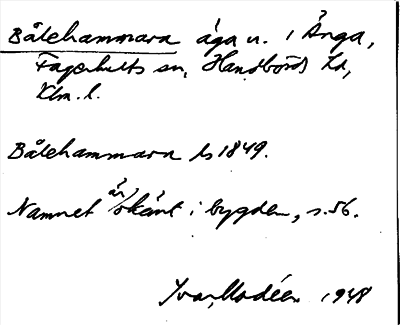 Båtehammara äga u. i Ånga,
Fagerhults sn, Handbörds hd,
Klm. l.
Båtehammara ls 1849.
Namnet är okänt i bygden, s. 56.
Ivar Modéer 1948